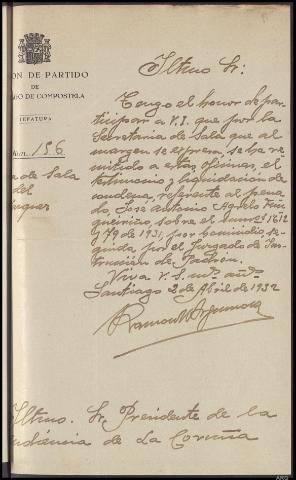 ON DE PARTIDO
DE
GO DE COMPOSTELA
JEFATURA
Núm. 156
a de Sala
del
Iltmo Sr:
Tengo el honor de par-
ticipar a V.I. que por la
Secretaria de Sala que al
margen se expresa, se ha re-
mitido a estas oficinas, el
testimonio y liquidación de
condena, referente al pena-
do, José Antonio Angelo
sobre el sumrº 1632
y 79 de 1931, por homicidio, se-
guida por el Juzgado de Ins-
trucción de Padrón.
Viva V.S. mº. añº.
Santiago 2 de Abril de 1932
Ramón
Iltmo. Sr. Presidente de la
udiencia de La Coruña